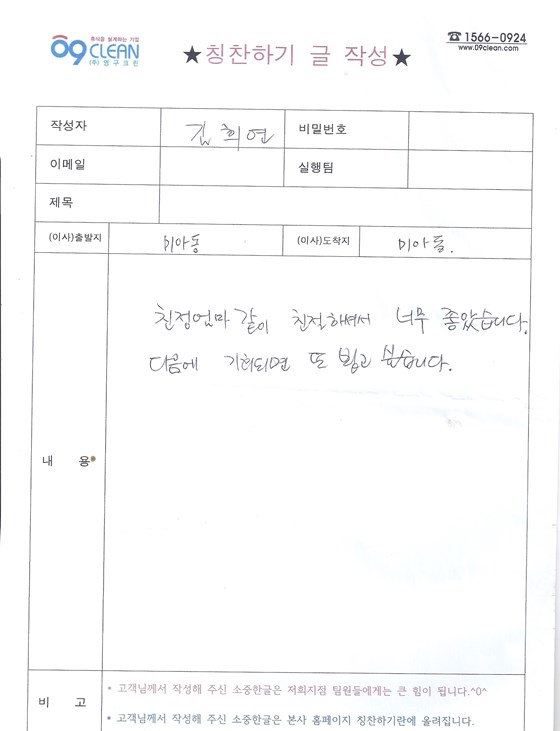 행복을 설계하는 기업
09 CLEAN
(주)영구크린
★칭찬하기 글 작성★
☎ 1566-0924
www.09clean.com
작성자 김희연 비밀번호
이메일 실행팀
제목
(이사)출발지 미아동 (이사)도착지 미아동.
친정엄마 같이 친절하셔서 너무 좋았습니다.
다음에 기회되면 또 뵙고 싶습니다.
내 용
비 고
• 고객님께서 작성해 주신 소중한글은 저희지점 팀원들에게는 큰 힘이 됩니다.^0^
• 고객님께서 작성해 주신 소중한글은 본사 홈페이지 칭찬하기란에 올려집니다.